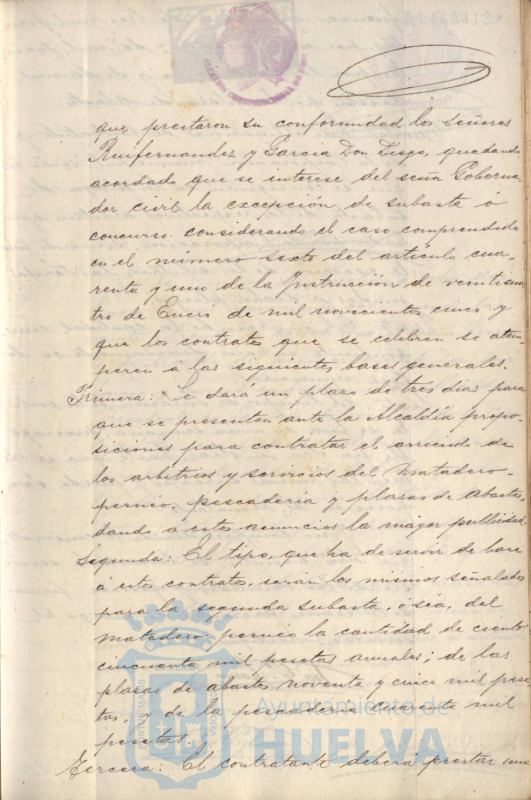 que prestaron su conformidad los señores
Ruifernandez y Garcia Don Diego, quedando
acordado que se interese del señor Goberna-
dor civil la excepción de subasta ó
concurso considerando el caso comprendido
en el número sexto del artículo cua-
renta y uno de la Instrucción de veinticua-
tro de Enero de mil novecientos cinco y
que los contratos que se celebren se atem-
peren á las siguientes bases generales.
Primera: Se dará un plazo de tres dias para
que se presenten ante la Alcaldía propo-
siciones para contratar el arriendo de
los arbitrios y servicios del Matadero
pernio, pescadería y plazas de abastos,
dando á estos anuncios la mayor publicidad.
Segunda: El tipo, que ha de servir de base
á estos contratos, serán los mismos señalados
para la segunda subasta, ó sea, del
matadero pernio la cantidad de ciento
cincuenta mil pesetas anuales; de las
plazas de abastos noventa y cinco mil pese-
tas, y de la pescaderia cuarenta mil
pesetas.
Tercera: El contratante deberá prestar una
Ayuntamiento de
HUELVA